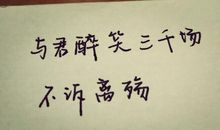 与君醉笑三千场
不诉离殇